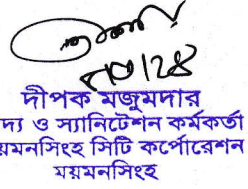 দীপক মজুমদার
দ্য ও স্যানিটেশন কর্মকর্তা
য়মনসিংহ সিটি কর্পোরেশন
ময়মনসিংহ